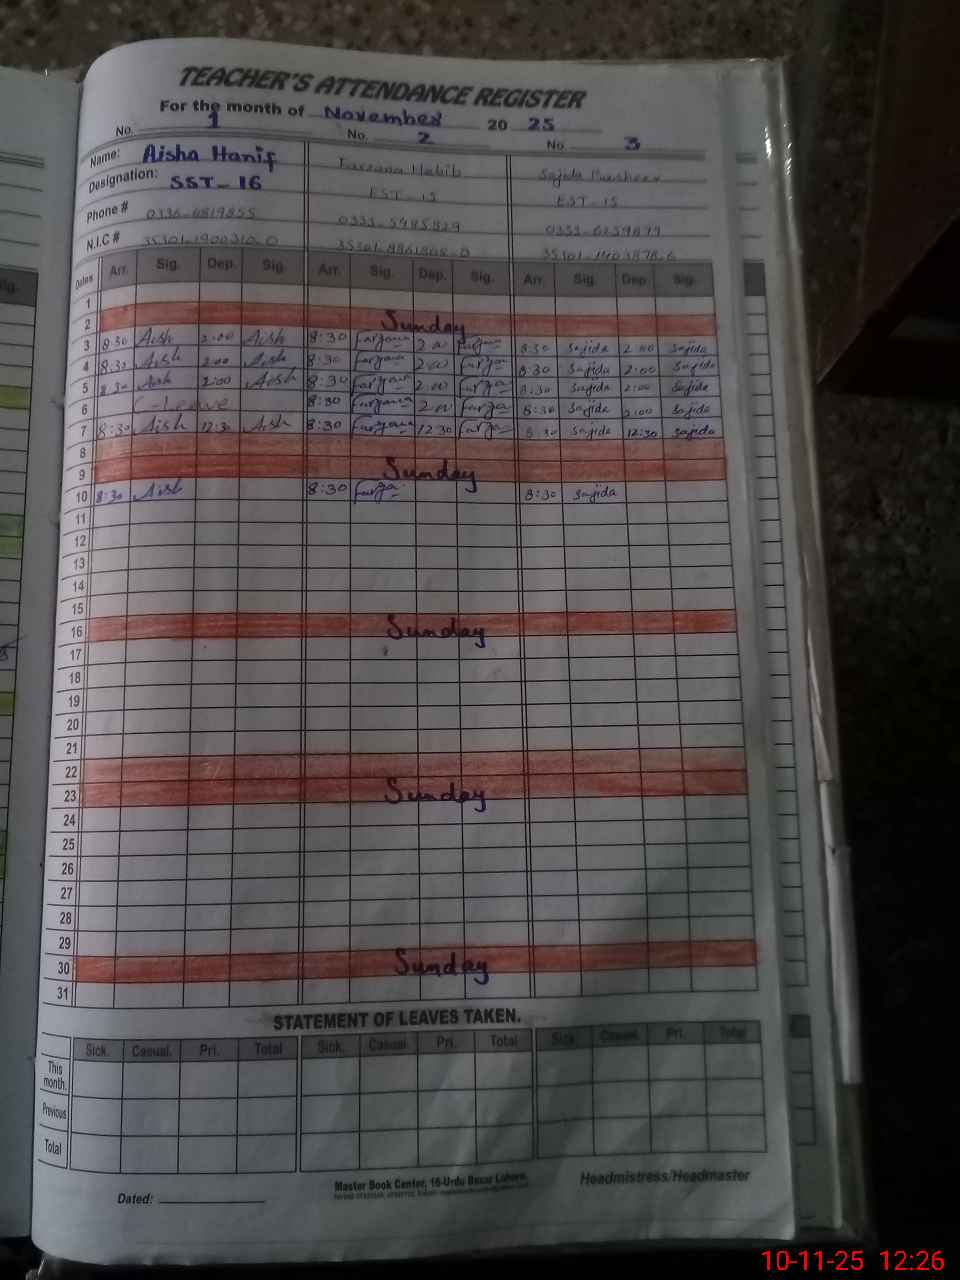 TEACHER'S ATTENDANCE REGISTER
For the month of November 20 25
No. 1 No. 2 No 3
Name: Aisha Hanif Farzana Habib Sajida Basheer
Designation: SST-16 EST-15 EST-15
Phone #
N.I.C #
Dates Arr. Sig. Dep. Sig. Arr. Sig. Dep. Sig. Arr. Sig. Dep. Sig.
1
2 Sunday
3 8:30 Aish 2:00 Aish 8:30 Farzana 2:00 Farzana 8:30 Sajida 2:00 Sajida
4 8:30 Aish 2:00 Aish 8:30 Farzana 2:00 Farza 8:30 Sajida 2:00 Sajida
5 8:30 Aish 2:00 Aish 8:30 Farzana 2:00 Farza 8:30 Sajida 2:00 Sajida
6 C-Leave 8:30 Farzana 2:00 Farza 8:30 Sajida 2:00 Sajida
7 8:30 Aish 12:30 Aish 8:30 Farzana 12:30 Farza 8:30 Sajida 12:30 Sajida
8
9 Sunday
10 8:30 Aish 8:30 Farza 8:30 Sajida
11
12
13
14
15
16 Sunday
17
18
19
20
21
22
23 Sunday
24
25
26
27
28
29
30 Sunday
31
STATEMENT OF LEAVES TAKEN.
Sick. Casual. Pri. Total Sick. Casual. Pri. Total Sick. Casual. Pri. Total
This month.
Previous
Total
Dated: Master Book Center, 16-Urdu Bazar Lahore. Headmistress/Headmaster
10-11-25 12:26